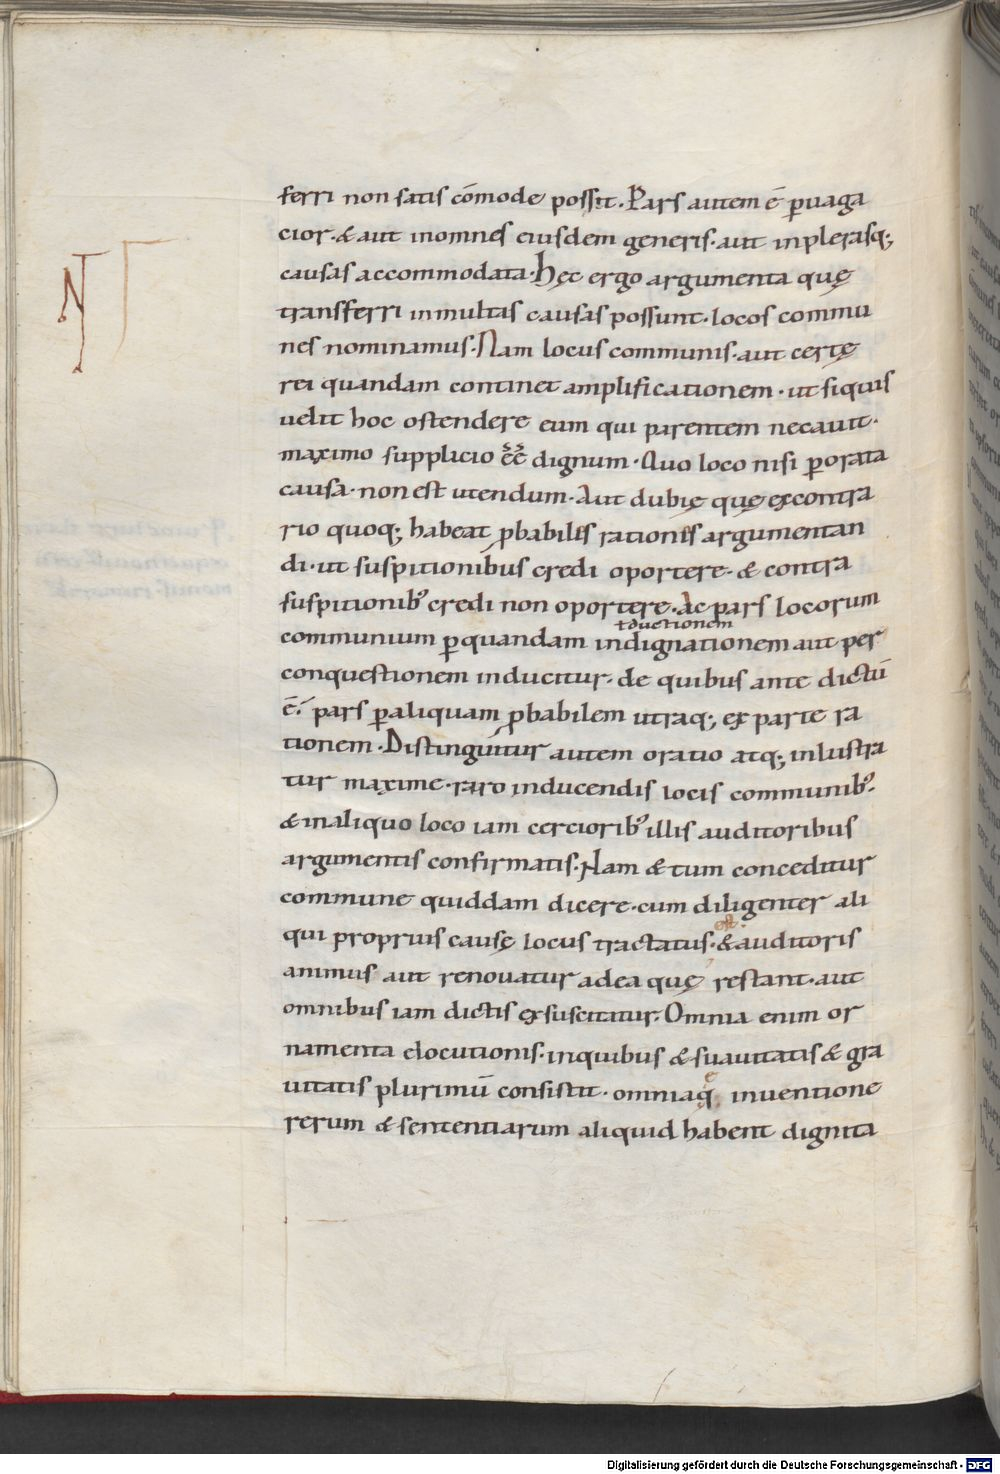 ferri non satis cōmode possit. Pars autem ē ꝑuaga
cior. & aut inomnes eiusdem generis. aut inplerasq;
causas accommodata. Hęc ergo argumenta quę
transferri inmultas causas possunt. locos commu
nes nominamus. Nam locus communis. aut certę
rei quandam continet amplificationem. ut siquis
uelit hoc ostendere eum qui parentem necauit.
maximo supplicio ēē dignum. Quo loco nisi ꝑorata
causa. non est utendum. Aut dubię quę excontra
rio quoq; habeat ꝓbabiles rationes argumentan
di. ut suspitionibus credi oportere. & contra
suspitionib; credi non oportere. Ac pars locorum
communium ꝑ quandam indignationem aut per
conquestionem inducitur. de quibus ante dictū
ē. pars ꝑ aliquam ꝓbabilem utraq; ex parte ra
tionem. Distinguitur autem oratio atq; inlustra
tur maxime. raro inducendis locis communib;.
& inaliquo loco iam cerciorib; illis auditoribus
argumentis confirmatis. Nam & tum conceditur
commune quiddam dicere. cum diligenter ali
qui proprius causę locus tractatus. est
& auditoris
animus aut renouatur adea quę restant. aut
omnibus iam dictis exsuscitatur. Omnia enim or
namenta elocutionis. inquibus & suauitatis & gra
uitatis plurimū consistit. omniaq; inuentione
rerum & sententiarum aliquid habent dignita
Digitalisierung gefördert durch die Deutsche Forschungsgemeinschaft - DFG